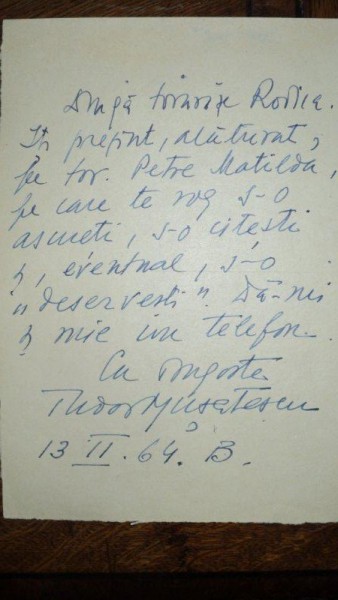 Dragă tovarășe Rodica.
Iți prezint, alăturat,
pe tov. Petre Matilda,
pe care te rog s-o
asculți, s-o citești
și, eventual, s-o
"deservești". Dă-mi
și mie un telefon.
Cu dragoste
Tudor Mușatescu
13 II. 64. B.